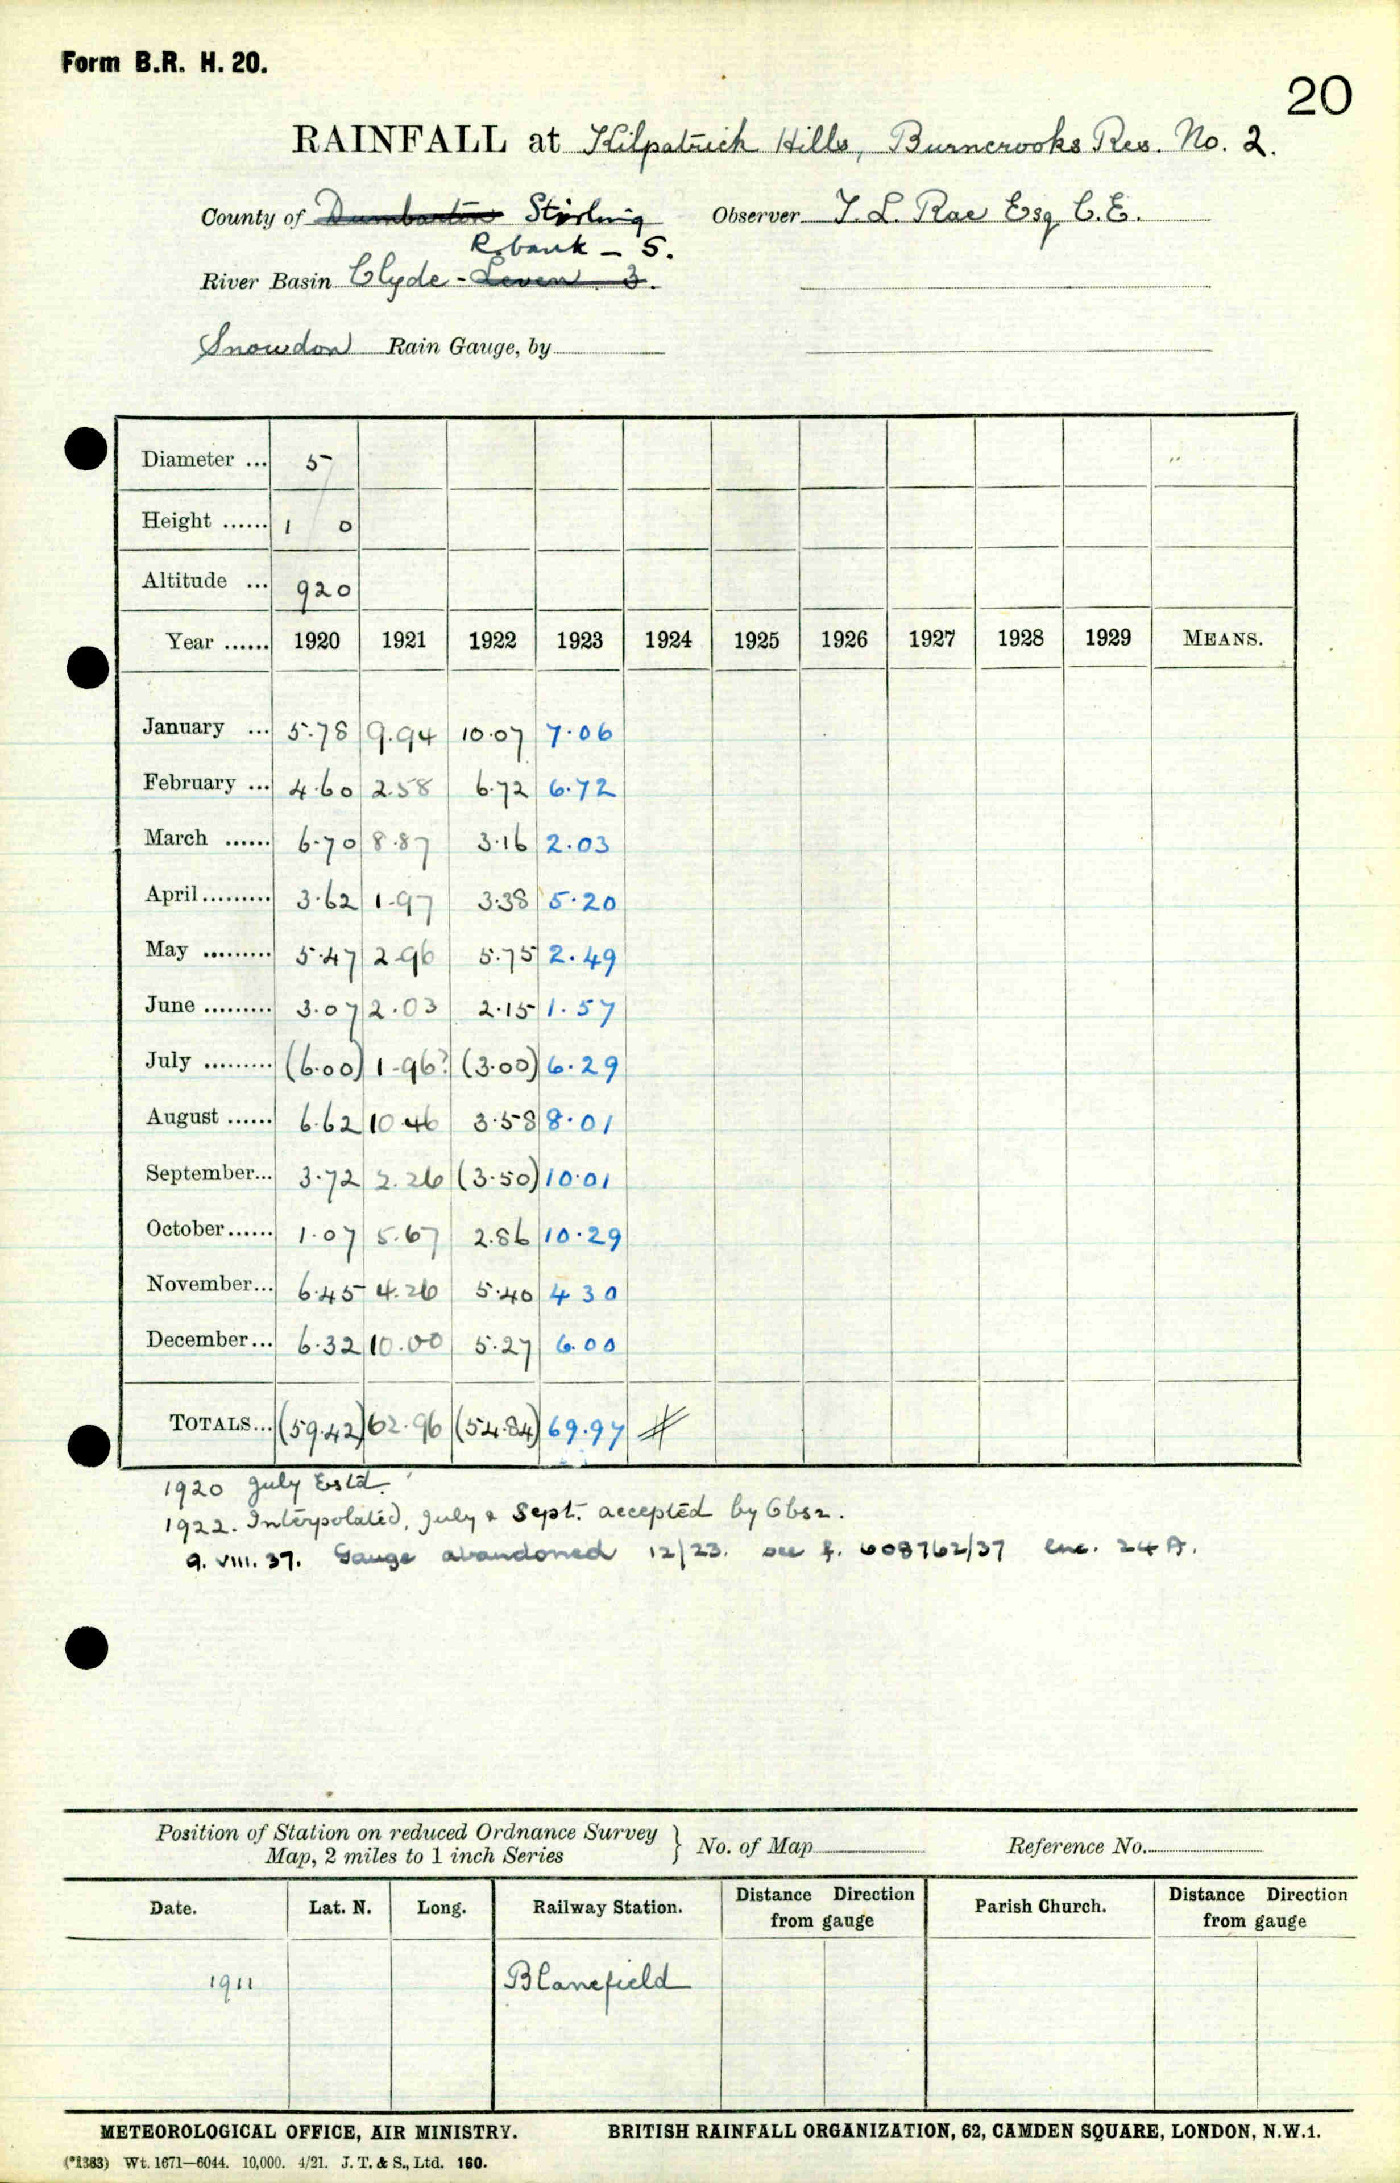 Form B.R. H. 20.
20
RAINFALL at Kilpatrick Hills, Burncrooks Res. No. 2.
County of Dumbarton Stirling Observer T. L. Rae Esq C.E.
R. bank - 5.
River Basin Clyde - Leven 3.
Snowdon Rain Gauge, by
Diameter ... 5
Height ...... 1 0
Altitude ... 920
Year ...... 1920 1921 1922 1923 1924 1925 1926 1927 1928 1929 MEANS.
January ... 5.78 9.94 10.07 7.06
February ... 4.60 2.58 6.72 6.72
March ...... 6.70 8.87 3.16 2.03
April ......... 3.62 1.97 3.38 5.20
May ......... 5.47 2.96 5.75 2.49
June ......... 3.07 2.03 2.15 1.57
July ......... (6.00) 1.96? (3.00) 6.29
August ...... 6.62 10.46 3.58 8.01
September... 3.72 2.26 (3.50) 10.01
October...... 1.07 5.67 2.86 10.29
November... 6.45 4.26 5.40 4 30
December... 6.32 10.00 5.27 6.00
TOTALS... (59.42) 62.96 (54.84) 69.97
1920 July Estd.
1922. Interpolated, July & Sept. accepted by Obsr.
9. VIII. 37. Gauge abandoned 12/23. see f. 608762/37 enc. 24 A.
Position of Station on reduced Ordnance Survey
Map, 2 miles to 1 inch Series } No. of Map Reference No.
Date. Lat. N. Long. Railway Station. Distance Direction from gauge Parish Church. Distance Direction from gauge
1911 Blanefield
METEOROLOGICAL OFFICE, AIR MINISTRY. BRITISH RAINFALL ORGANIZATION, 62, CAMDEN SQUARE, LONDON, N.W.1.
(*1383) Wt. 1671—6044. 10,000. 4/21. J. T. & S., Ltd. 160.